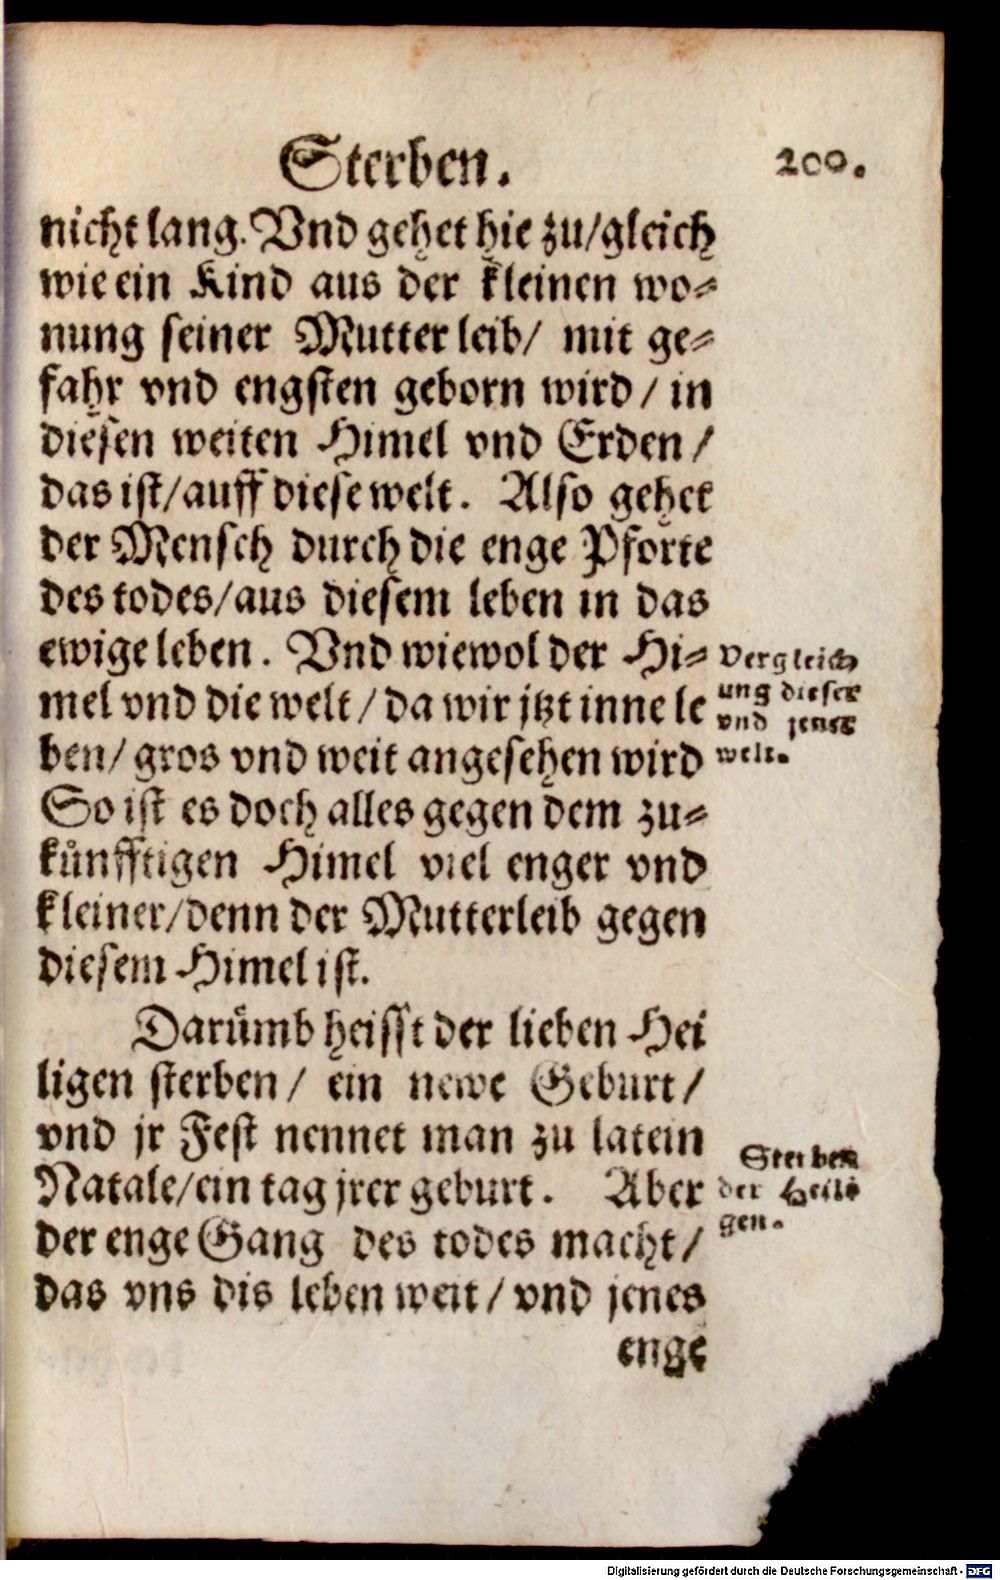 Sterben. 200.
nicht lang. Vnd gehet hie zu/gleich
wie ein Kind aus der kleinen wo⸗
nung seiner Mutter leib/ mit ge⸗
fahr vnd engsten geborn wird / in
diesen weiten Himel vnd Erden /
das ist/auff diese welt. Also gehet
der Mensch durch die enge Pforte
des todes/aus diesem leben in das
ewige leben. Vnd wiewol der Hi⸗
mel vnd die welt / da wir jtzt inne le
ben/ gros vnd weit angesehen wird
So ist es doch alles gegen dem zu⸗
kůnfftigen Himel viel enger vnd
kleiner/denn der Mutterleib gegen
diesem Himel ist.
Darůmb heisst der lieben Hei
ligen sterben / ein newe Geburt /
vnd jr Fest nennet man zu latein
Natale/ein tag jrer geburt. Aber
der enge Gang des todes macht /
das vns dis leben weit / vnd jenes
enge
Vergleich
ung dieser
vnd jener
welt.
Sterben
der Heili
gen.
Digitalisierung gefördert durch die Deutsche Forschungsgemeinschaft - DFG